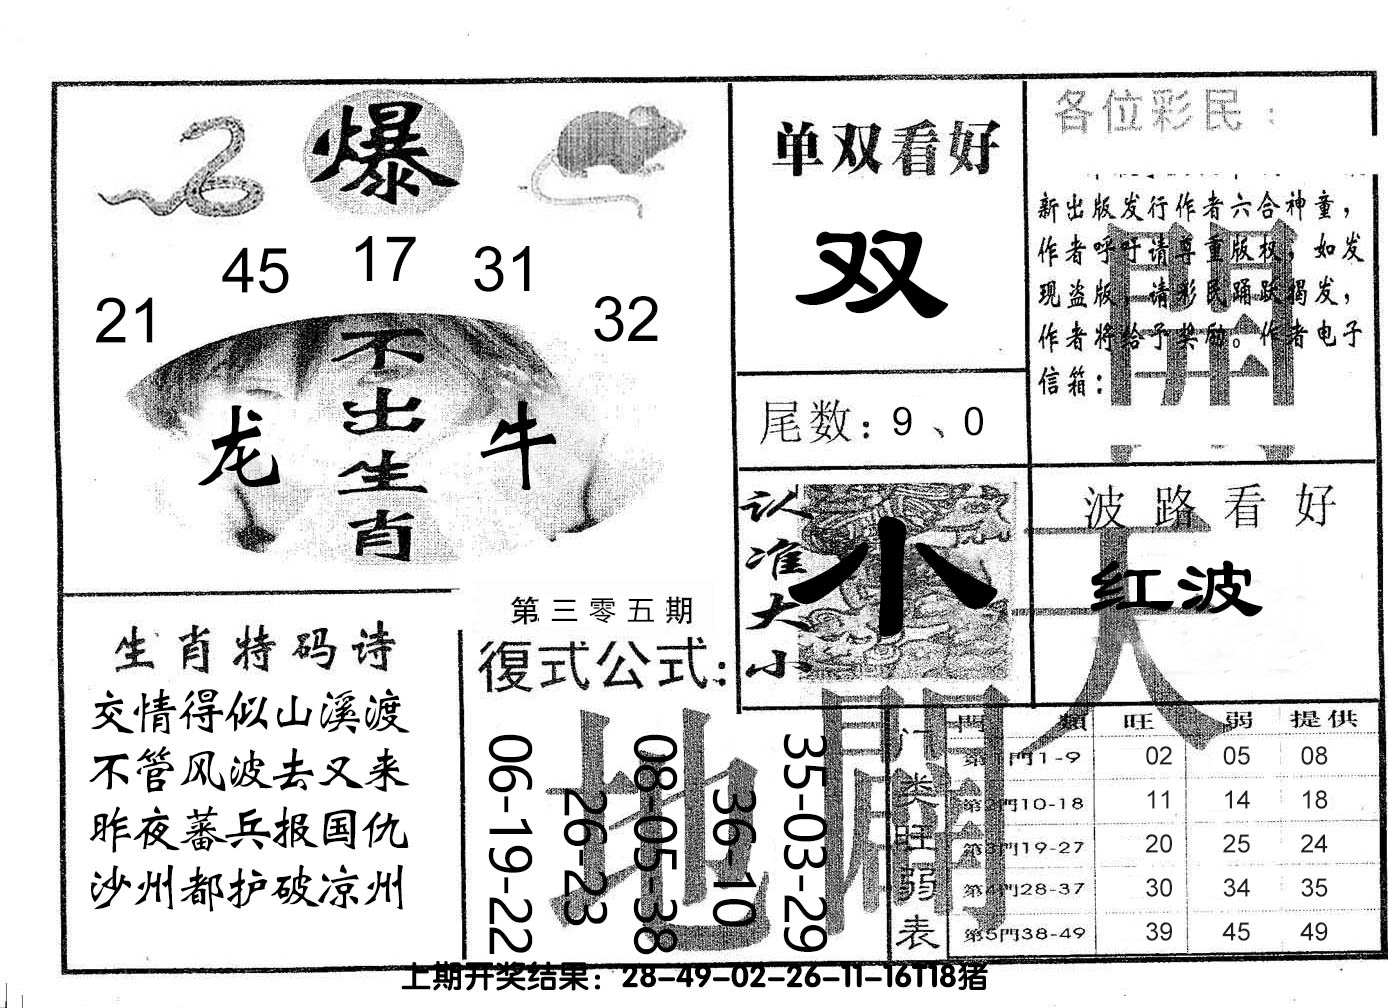 爆
45 17 31
21 32
不出生肖
龙 牛
单双看好
双
尾数：9、0
各位彩民：
新出版发行作者六合神童，
作者呼吁请尊重版权，如发
现盗版，请彩民踊跃揭发，
作者将给予奖励。作者电子
信箱：
開
认准大小
小
波路看好
红波
天
生肖特码诗
交情得似山溪渡
不管风波去又来
昨夜蕃兵报国仇
沙州都护破凉州
第三零五期
復式公式：
06-19-22
26-23
08-05-38
36-10
35-03-29
地
開
门类旺弱表
門 類 旺 弱 提供
第1門1-9 02 05 08
第2門10-18 11 14 18
第3門19-27 20 25 24
第4門28-37 30 34 35
第5門38-49 39 45 49
上期开奖结果：28-49-02-26-11-16T18猪